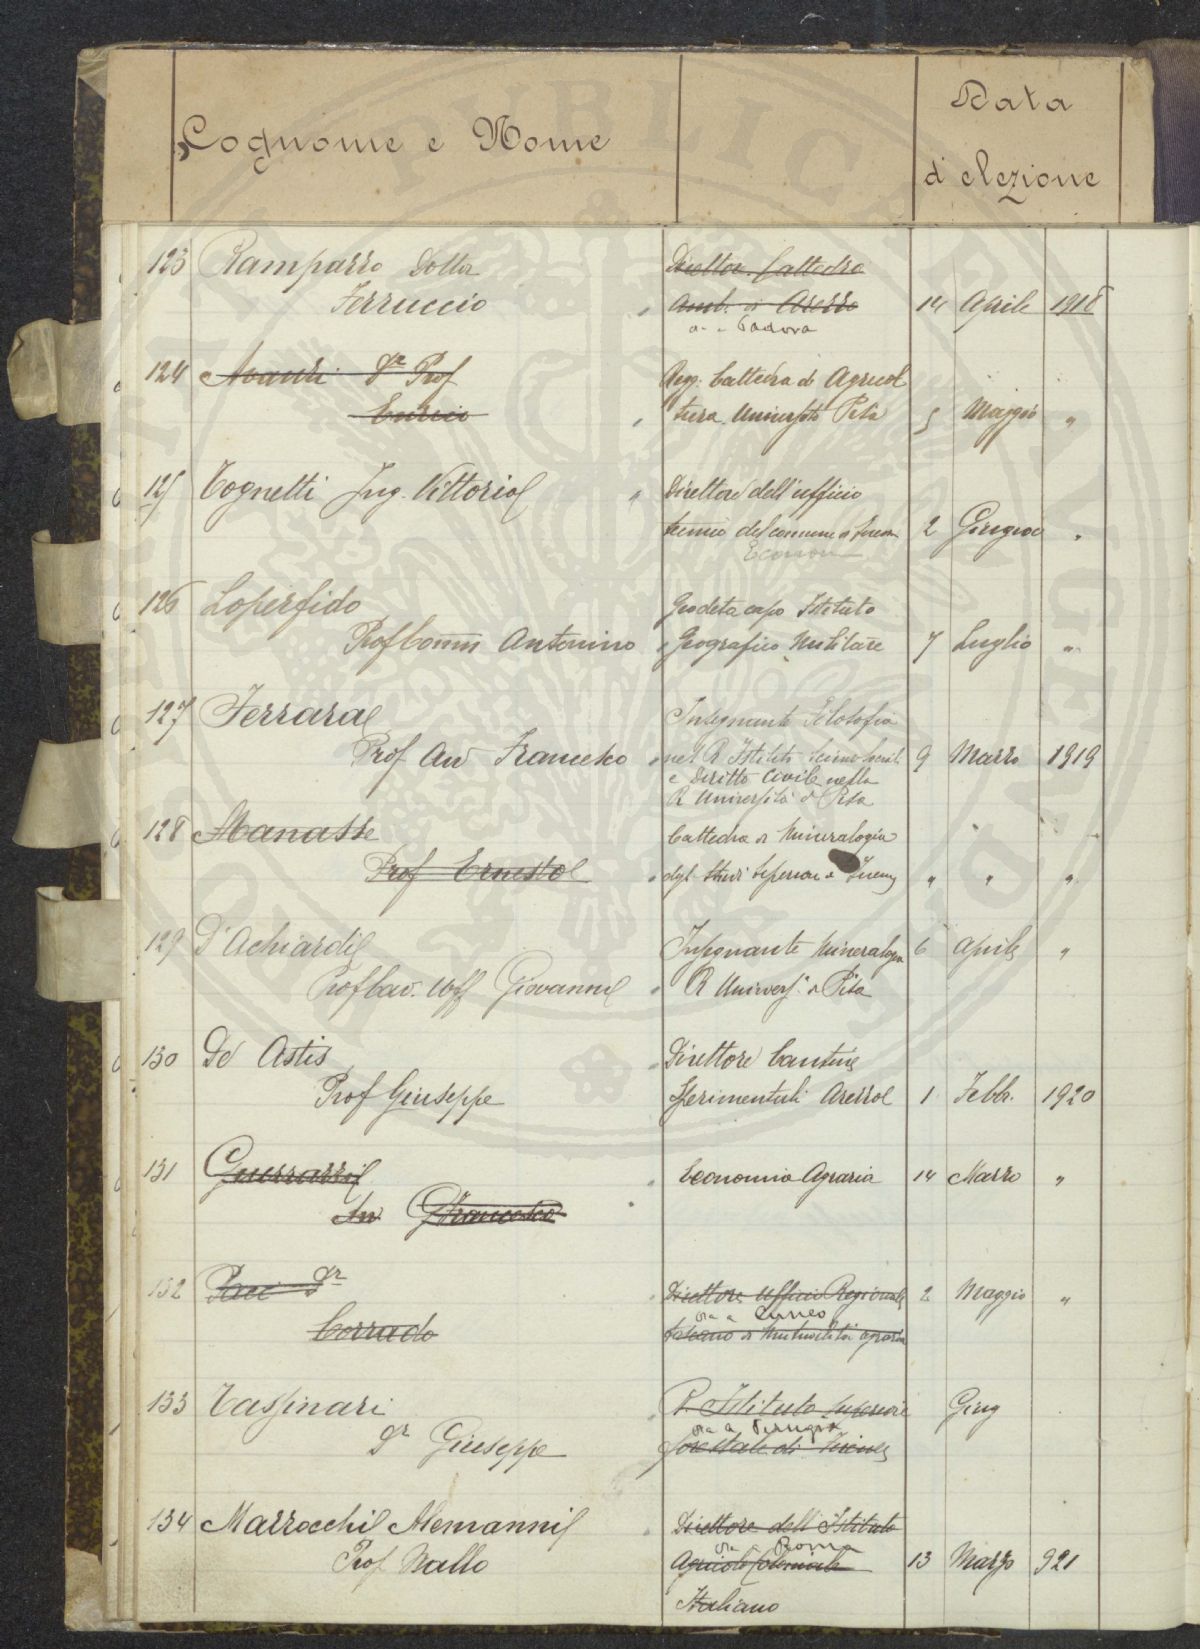 Cognome e Nome
Data
di elezione
123 Ramparro Dottor Direttore Cattedra
Ferruccio " Amb. di Arezzo 14 Aprile 1918
ora a Padova
124 Avanzi Dr Prof Reg. Cattedra di Agricol
Enrico " tura Università Pisa 5 Maggio "
125 Tognetti Ing. Vittorio " Direttore dell'ufficio
tecnico del comune di 2 Giugno "
Econom
126 Loperfido Geodeta capo Istituto
Prof Comm Antonino " Geografico Militare 7 Luglio "
127 Ferrara Insegnante Filosofia
Prof Avv Francesco " nel R Istituto Scienze Sociali 9 Marzo 1919
e Diritto Civile nella
R Università di Pisa
128 Manasse Cattedra di Mineralogia
Prof Ernesto " degli Studi Superiori di Firenze " " "
129 D'Achiardi Insegnante Mineralogia 6 Aprile "
Prof Cav. Uff Giovanni " R Univers. di Pisa
130 De Astis " Direttore Cantine
Prof Giuseppe Sperimentali Arezzo 1 Febb. 1920
131 Guerrazzi " Economia Agraria 14 Marzo "
Av G Francesco
132 Paci Dr Direttore Ufficio Regionale 2 Maggio "
ora a Cuneo
Corrado toscano di Mutualità agraria
133 Tassinari R. Istituto Superiore Giug
ora a Perugia
Dr Giuseppe forestale di Firenze
134 Marzocchi Alemanni Direttore dell'Istituto
ora a Roma
Prof Nallo Agricolo Coloniale 13 Marzo 921
Italiano